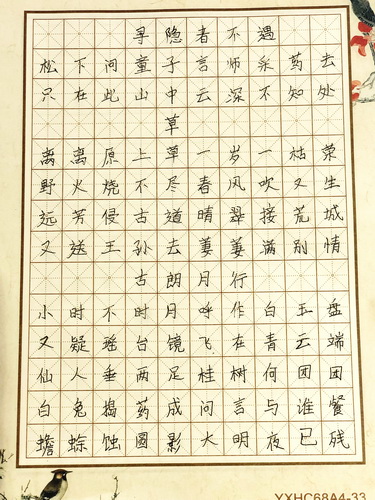 寻隐者不遇
松下问童子言师采药去
只在此山中云深不知处
草
离离原上草一岁一枯荣
野火烧不尽春风吹又生
远芳侵古道晴翠接荒城
又送王孙去萋萋满别情
古朗月行
小时不时月呼作白玉盘
又疑瑶台镜飞在青云端
仙人垂两足桂树何团团
白兔捣药成问言与谁餐
蟾蜍蚀圆影大明夜已残
YXHC68A4-33